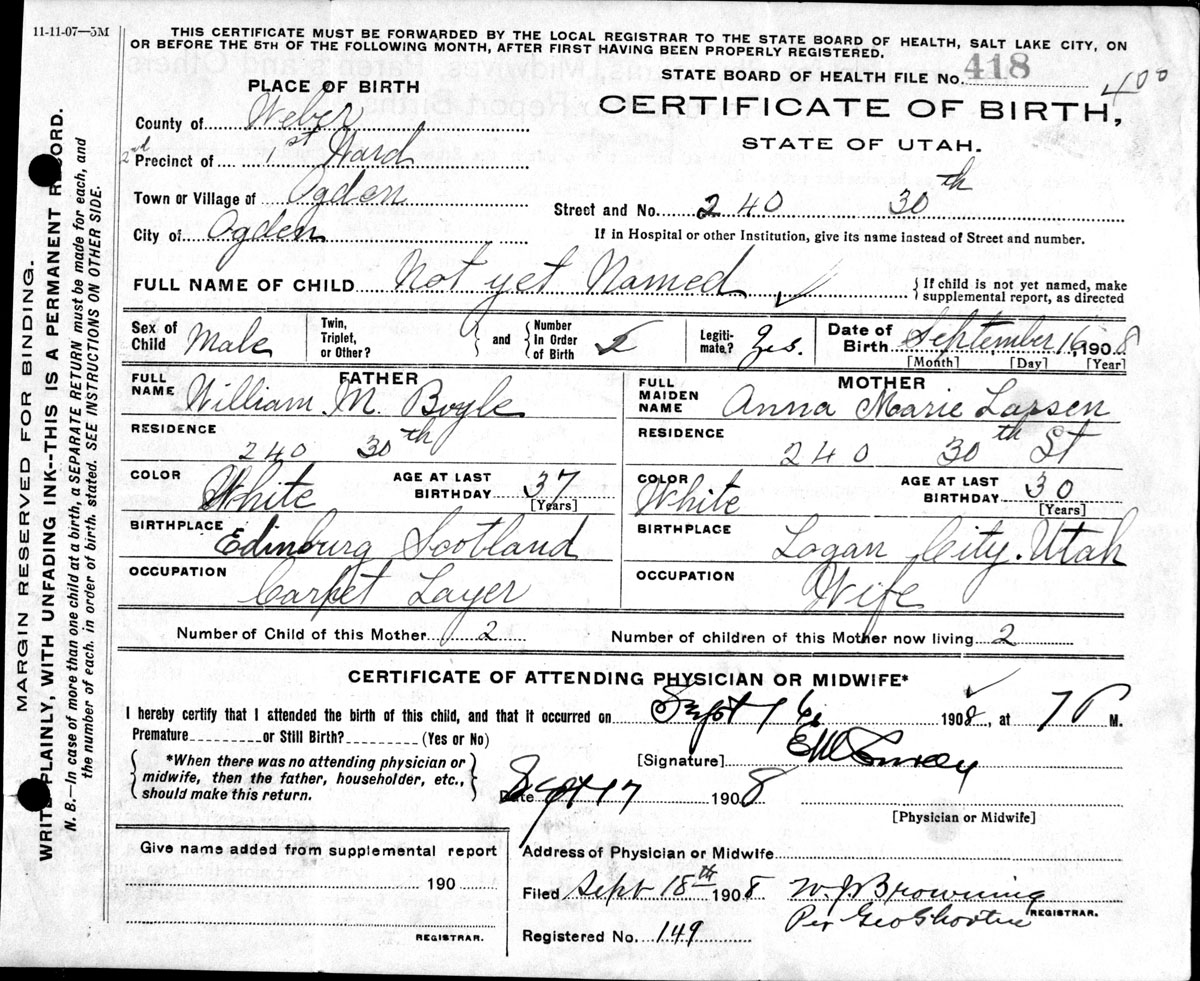 11-11-07—5M
THIS CERTIFICATE MUST BE FORWARDED BY THE LOCAL REGISTRAR TO THE STATE BOARD OF HEALTH, SALT LAKE CITY, ON
OR BEFORE THE 5TH OF THE FOLLOWING MONTH, AFTER FIRST HAVING BEEN PROPERLY REGISTERED.
STATE BOARD OF HEALTH FILE No. 418
400
PLACE OF BIRTH
CERTIFICATE OF BIRTH,
STATE OF UTAH.
County of Weber
2nd Precinct of 1st Ward
Town or Village of Ogden
Street and No. 240 30th
City of Ogden
If in Hospital or other Institution, give its name instead of Street and number.
FULL NAME OF CHILD Not yet Named ✓
{ If child is not yet named, make
supplemental report, as directed
Sex of Child Male
Twin, Triplet, or Other? } and { Number In Order of Birth 2
Legiti-mate? Yes.
Date of Birth September 16, 1908
[Month] [Day] [Year]
FATHER
FULL NAME William M. Boyle
RESIDENCE
240 30th
COLOR White
AGE AT LAST BIRTHDAY 37
[Years]
BIRTHPLACE
Edinburg Scotland
OCCUPATION
Carpet Layer
MOTHER
FULL MAIDEN NAME Anna Marie Larsen
RESIDENCE
240 30th St
COLOR White
AGE AT LAST BIRTHDAY 30
[Years]
BIRTHPLACE
Logan City. Utah
OCCUPATION
Wife
Number of Child of this Mother 2
Number of children of this Mother now living 2
CERTIFICATE OF ATTENDING PHYSICIAN OR MIDWIFE*
I hereby certify that I attended the birth of this child, and that it occurred on Sept 16 1908, at 7 P M.
Premature or Still Birth? (Yes or No)
{ *When there was no attending physician or
midwife, then the father, householder, etc.,
should make this return. }
[Signature]
Date Sept 17 1908
[Physician or Midwife]
Give name added from supplemental report
190
REGISTRAR.
Address of Physician or Midwife
Filed Sept 18th 1908 W J Browning
REGISTRAR.
Per Geo Shorten
Registered No. 149
MARGIN RESERVED FOR BINDING.
WRITE PLAINLY, WITH UNFADING INK--THIS IS A PERMANENT RECORD.
N. B.—In case of more than one child at a birth, a SEPARATE RETURN must be made for each, and
the number of each, in order of birth, stated. SEE INSTRUCTIONS ON OTHER SIDE.